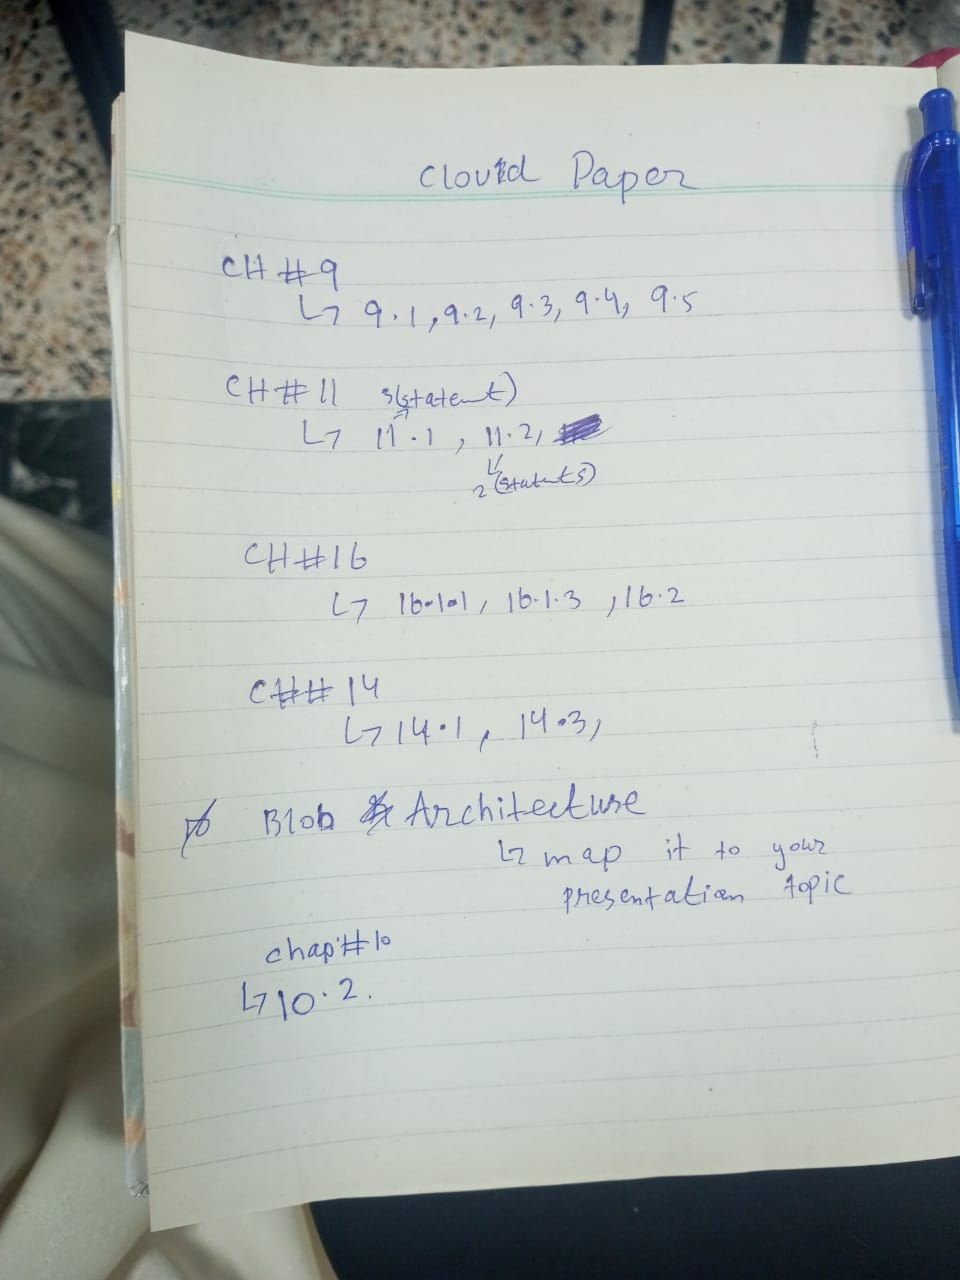 Cloud Paper
CH #9
↳ 9.1, 9.2, 9.3, 9.4, 9.5
CH #11 3(statemt)
↳ 11.1, 11.2,
2 (statmts)
CH #16
↳ 16.1.1, 16.1.3, 16.2
CH# 14
↳ 14.1, 14.3,
Blob & Architecture
↳ map it to your
presentation topic
chap# 10
↳ 10.2.